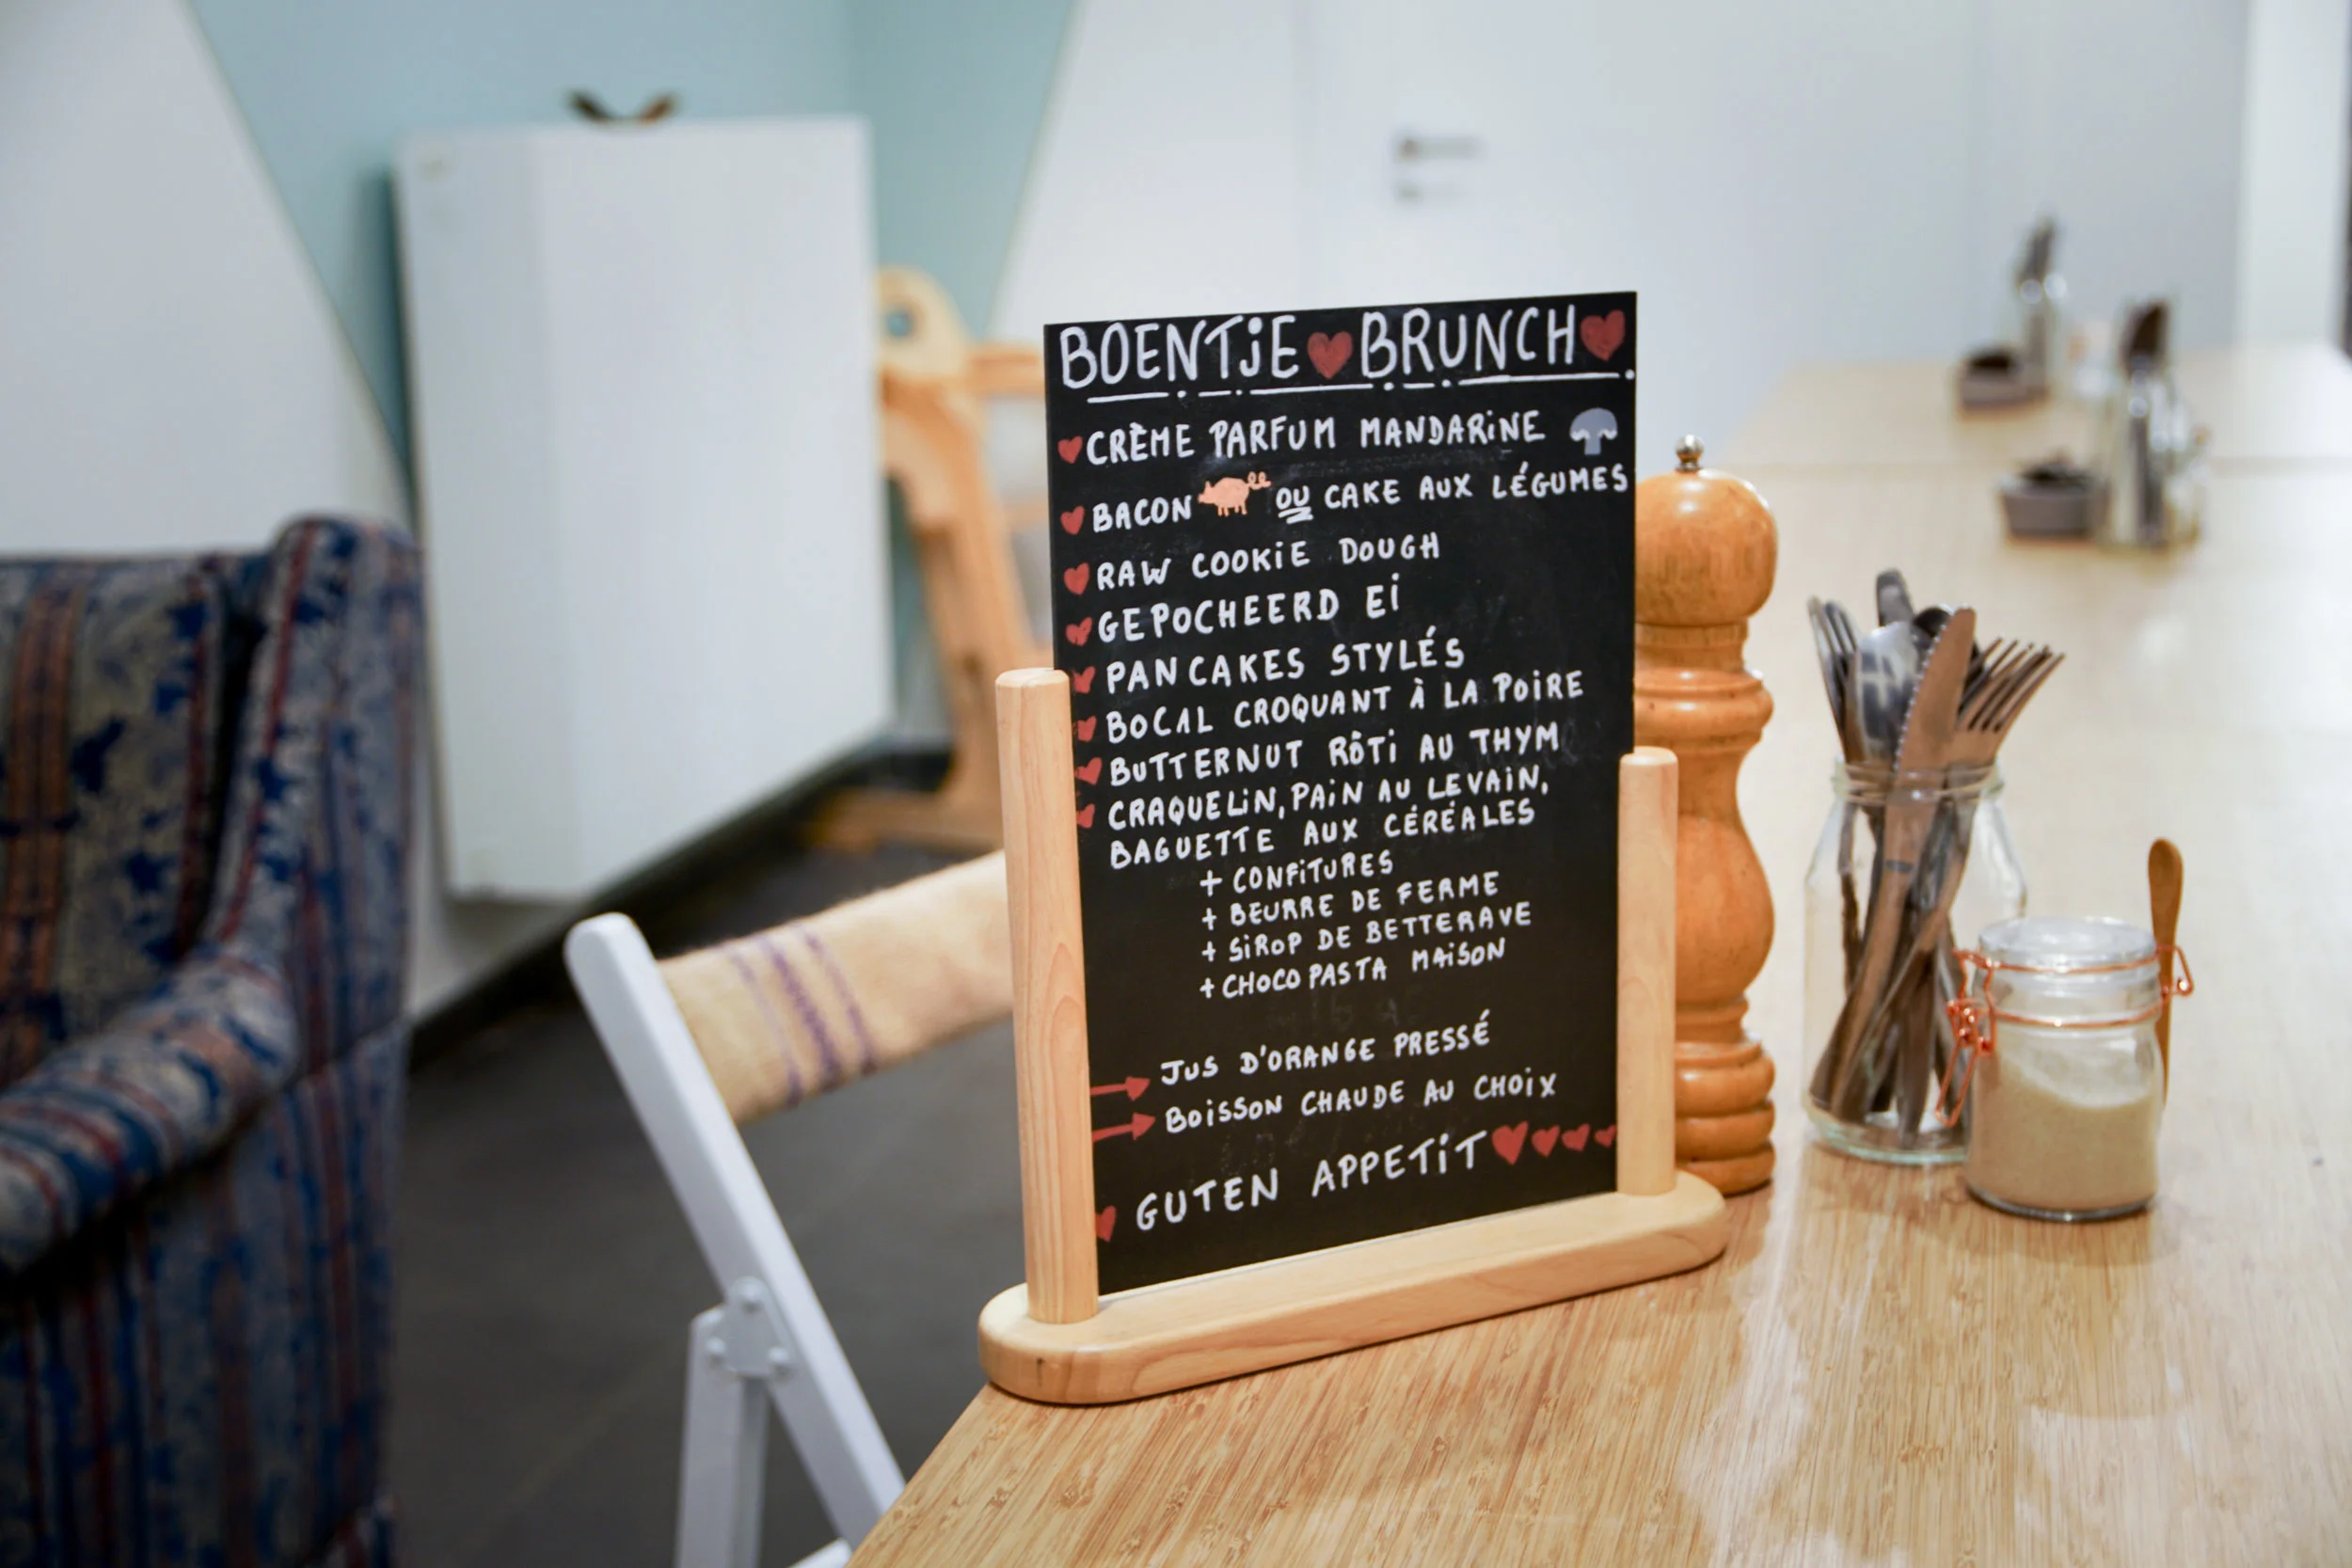 BOENTJE BRUNCH
CRÈME PARFUM MANDARINE
BACON OU CAKE AUX LÉGUMES
RAW COOKIE DOUGH
GEPOCHEERD EI
PANCAKES STYLÉS
BOCAL CROQUANT À LA POIRE
BUTTERNUT RÔTI AU THYM
CRAQUELIN, PAIN AU LEVAIN,
BAGUETTE AUX CÉRÉALES
+ CONFITURES
+ BEURRE DE FERME
+ SIROP DE BETTERAVE
+ CHOCOPASTA MAISON
JUS D'ORANGE PRESSÉ
BOISSON CHAUDE AU CHOIX
GUTEN APPETIT